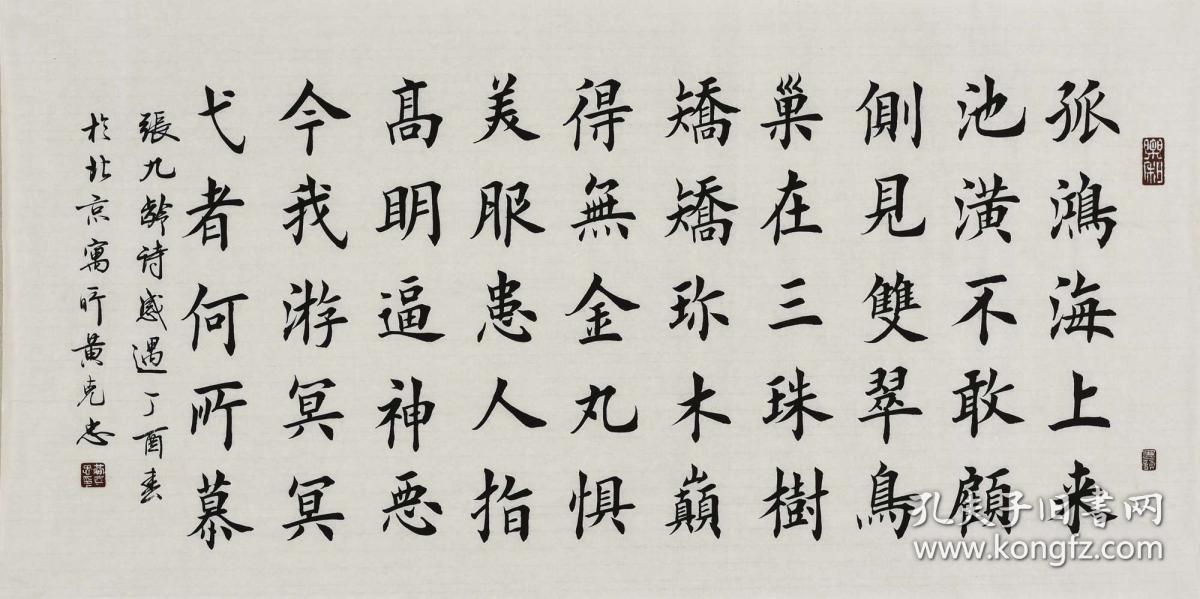 孤鴻海上来
池潢不敢顧
側見雙翠鳥
巢在三珠樹
矯矯珎木巔
得無金丸懼
美服患人指
高明逼神惡
今我游冥冥
弋者何所慕
張九齡诗感遇丁酉春
於北京寓所黄克忠
孔夫子旧书网
www.kongfz.com